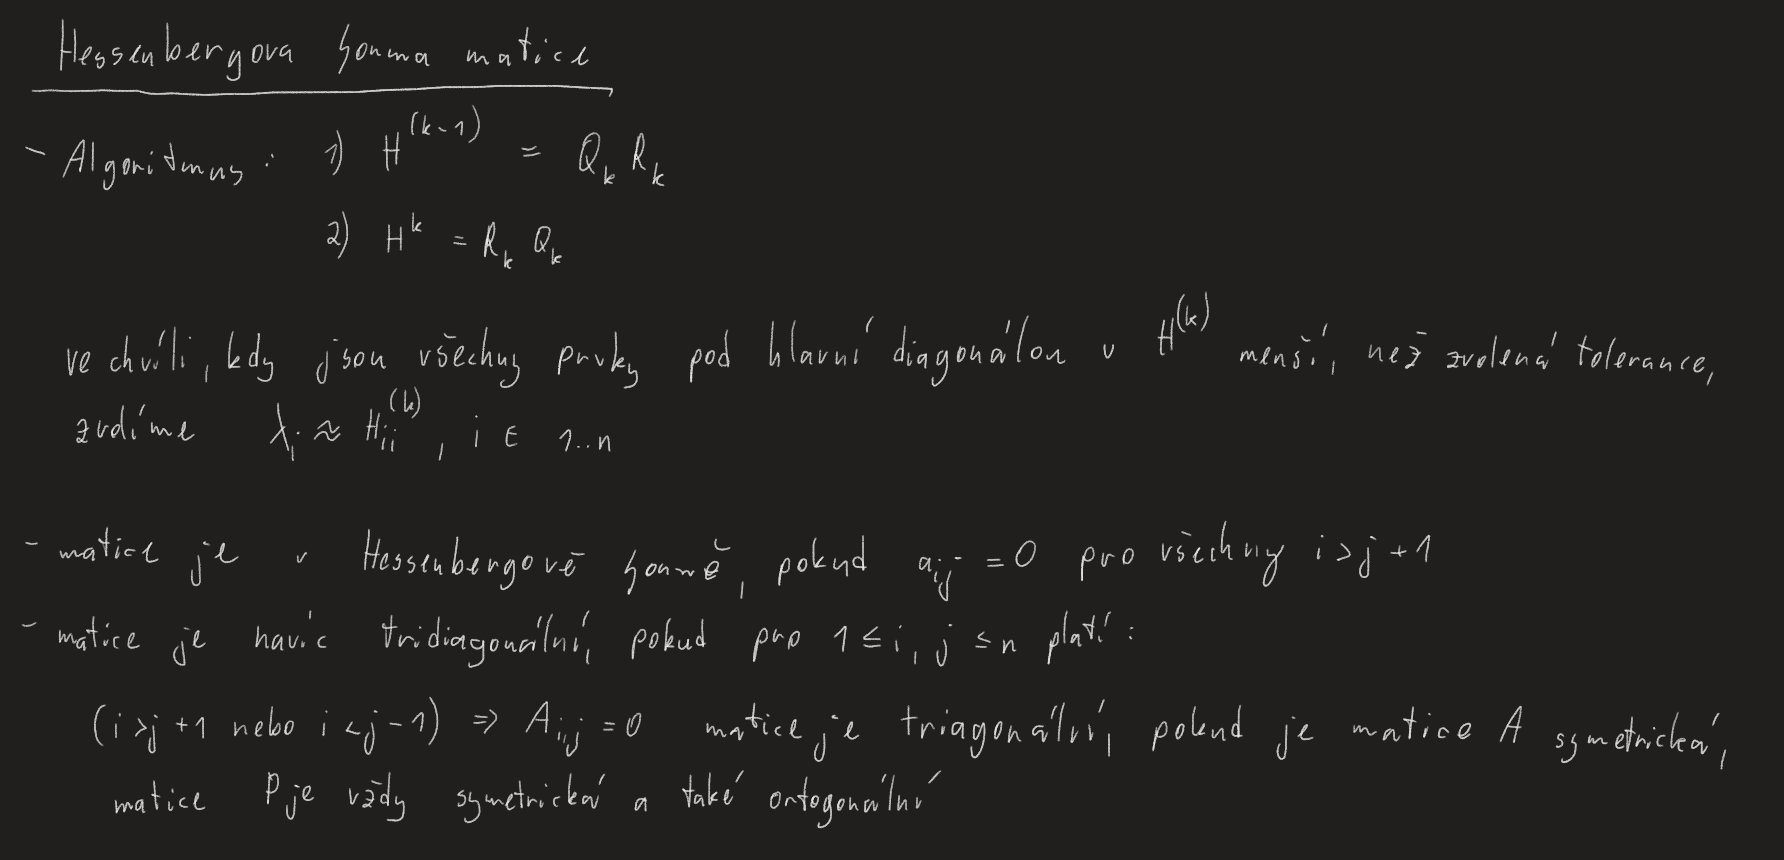 Hessenbergova forma matice
- Algoritmus: 1) H^(k-1) = Q_k R_k
2) H^k = R_k Q_k
ve chvíli, kdy jsou všechny prvky pod hlavní diagonálou v H^(k) menší, než zvolená tolerance,
zvolíme λ_i ≈ H_ii^(k), i ∈ 1..n
- matice je v Hessenbergově formě, pokud a_ij = 0 pro všechny i > j + 1
- matice je navíc tridiagonální, pokud pro 1 ≤ i, j ≤ n platí:
(i > j + 1 nebo i < j - 1) ⇒ A_i,j = 0 matice je triagonální, pokud je matice A symetrická,
matice P je vždy symetrická a také ortogonální